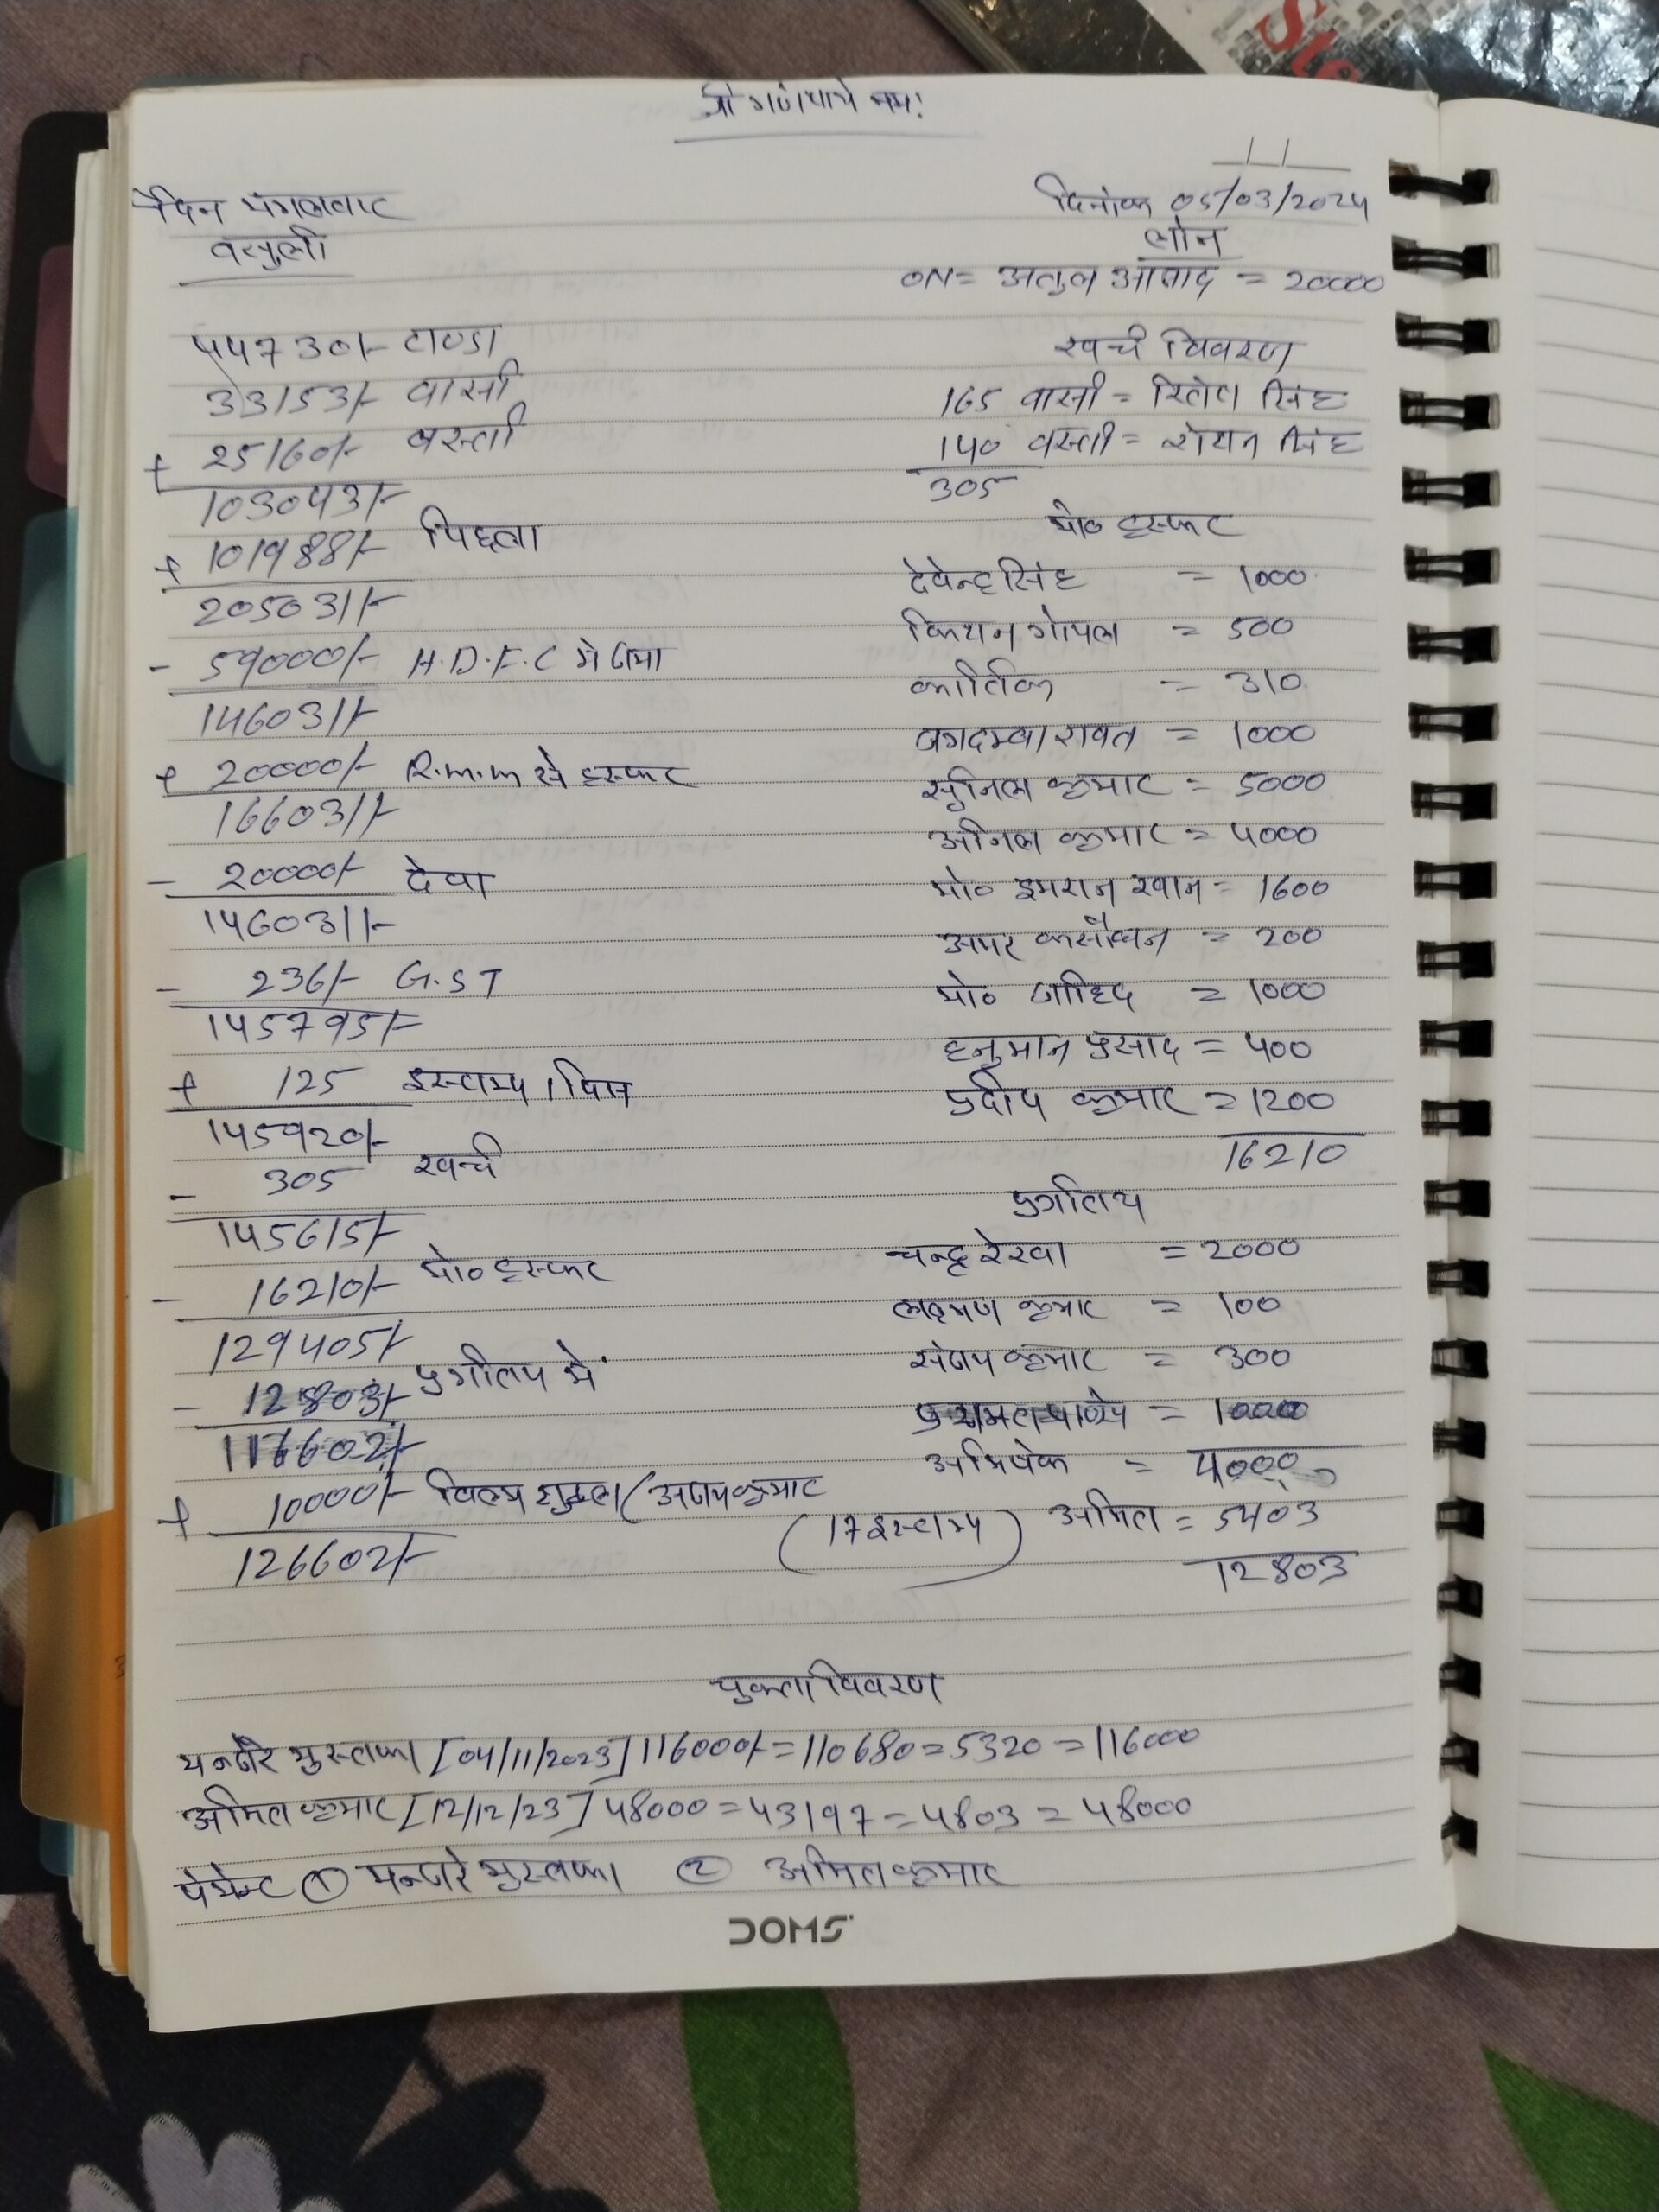 श्री गणेशाय नमः
दिन मंगलवार
दिनांक 05/03/2024
वसुली
लोन
ON= अतुल आजाद = 20000
44730/- टाण्डा
33153/- वासी
+ 25160/- बस्ती
103043/-
+ 101988/- पिछला
205031/-
- 59000/- H.D.F.C मे जमा
146031/-
+ 20000/- R.m.m से ट्रस्फर
166031/-
- 20000/- देवा
146031/-
- 236/- G.S T
145795/-
+ 125 इस्टाम्प
145920/-
- 305 खर्च
145615/-
- 16210/- मो० ट्रस्फर
129405/-
- 12803/- प्रगतिय मे
116602/-
+ 10000/- शुक्ला (अजय कुमार
126602/-
खर्च विवरण
165 वासी = सिंह
140 बस्ती = रोशन सिंह
305
मो० ट्रस्फर
देवेन्द्र सिंह = 1000
किशन गोपाल = 500
कार्तिक = 310
जगदम्बा रावत = 1000
सुनिल कुमार = 5000
अनिल कुमार = 4000
मो० इमरान खान = 1600
अमर कसौधन = 200
मो० जाहिद = 1000
हनुमान प्रसाद = 400
प्रदीप कुमार = 1200
16210
प्रगतिय
चन्द्र रेखा = 2000
लक्ष्मण कुमार = 100
संजय कुमार = 300
= 1000
अभिषेक = 4000
(17 इस्टाम्प) अमित = 5403
12803
चुकता विवरण
मन्जरे मुस्तफा [04/11/2023] 116000/- = 110680 = 5320 = 116000
अमित कुमार [12/12/23] 48000 = 43197 = 4803 = 48000
पेमेन्ट ① मन्जरे मुस्तफा ② अमित कुमार
DOMS